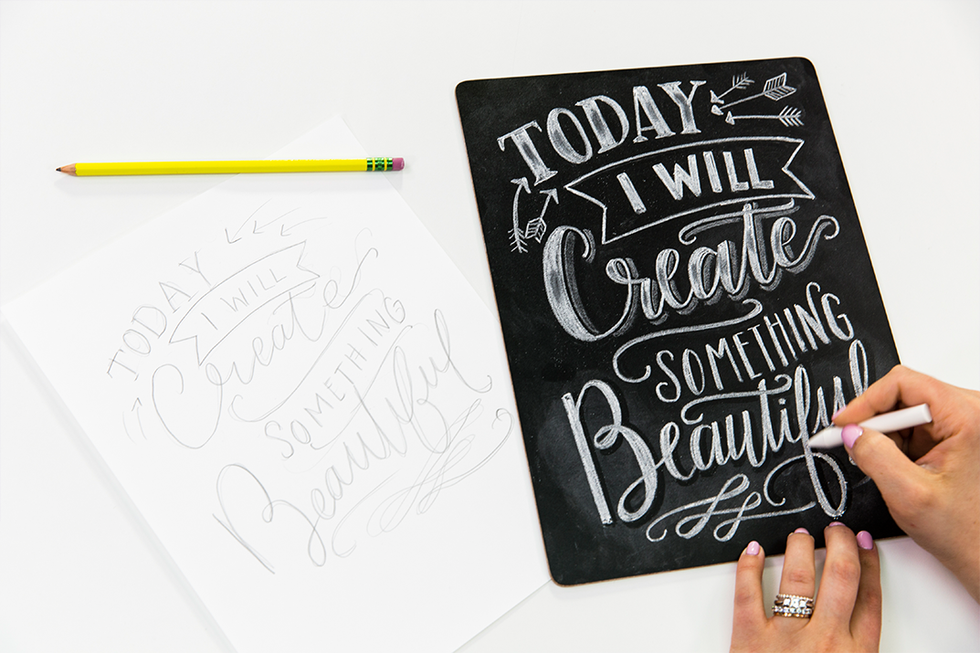 TODAY
I WILL
Create
SOMETHING
Beautiful
TODAY
I WILL
Create
SOMETHING
Beautiful